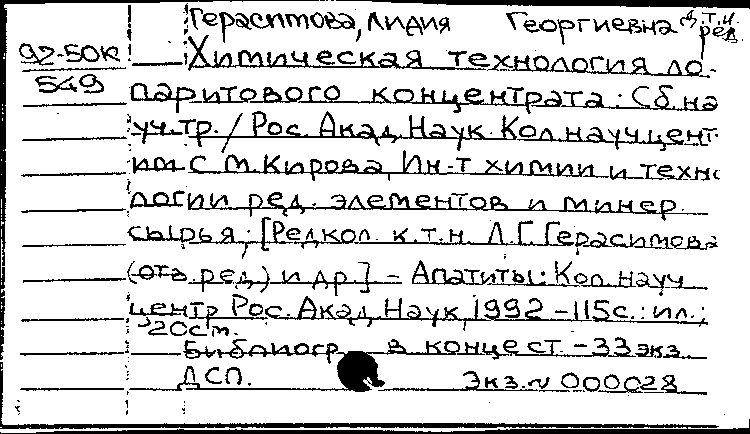 Герасимова, Лидия Георгиевна д.т.н. ред.
92-50к Химическая технология ло-
549 паритового концентрата: Сб. на
уч. тр. / Рос. Акад. Наук. Кол. науч. цент
им С. М. Кирова, Ин-т химии и техно
логии ред. элементов и минер.
сырья; [Редкол. к.т.н. Л. Г. Герасимова
(отв. ред.) и др.] – Апатиты: Кол. науч
центр Рос. Акад. Наук, 1992 – 115с.: ил.;
20см.
Библиогр в конце ст – 33 экз.
ДСП. Экз. № 000028